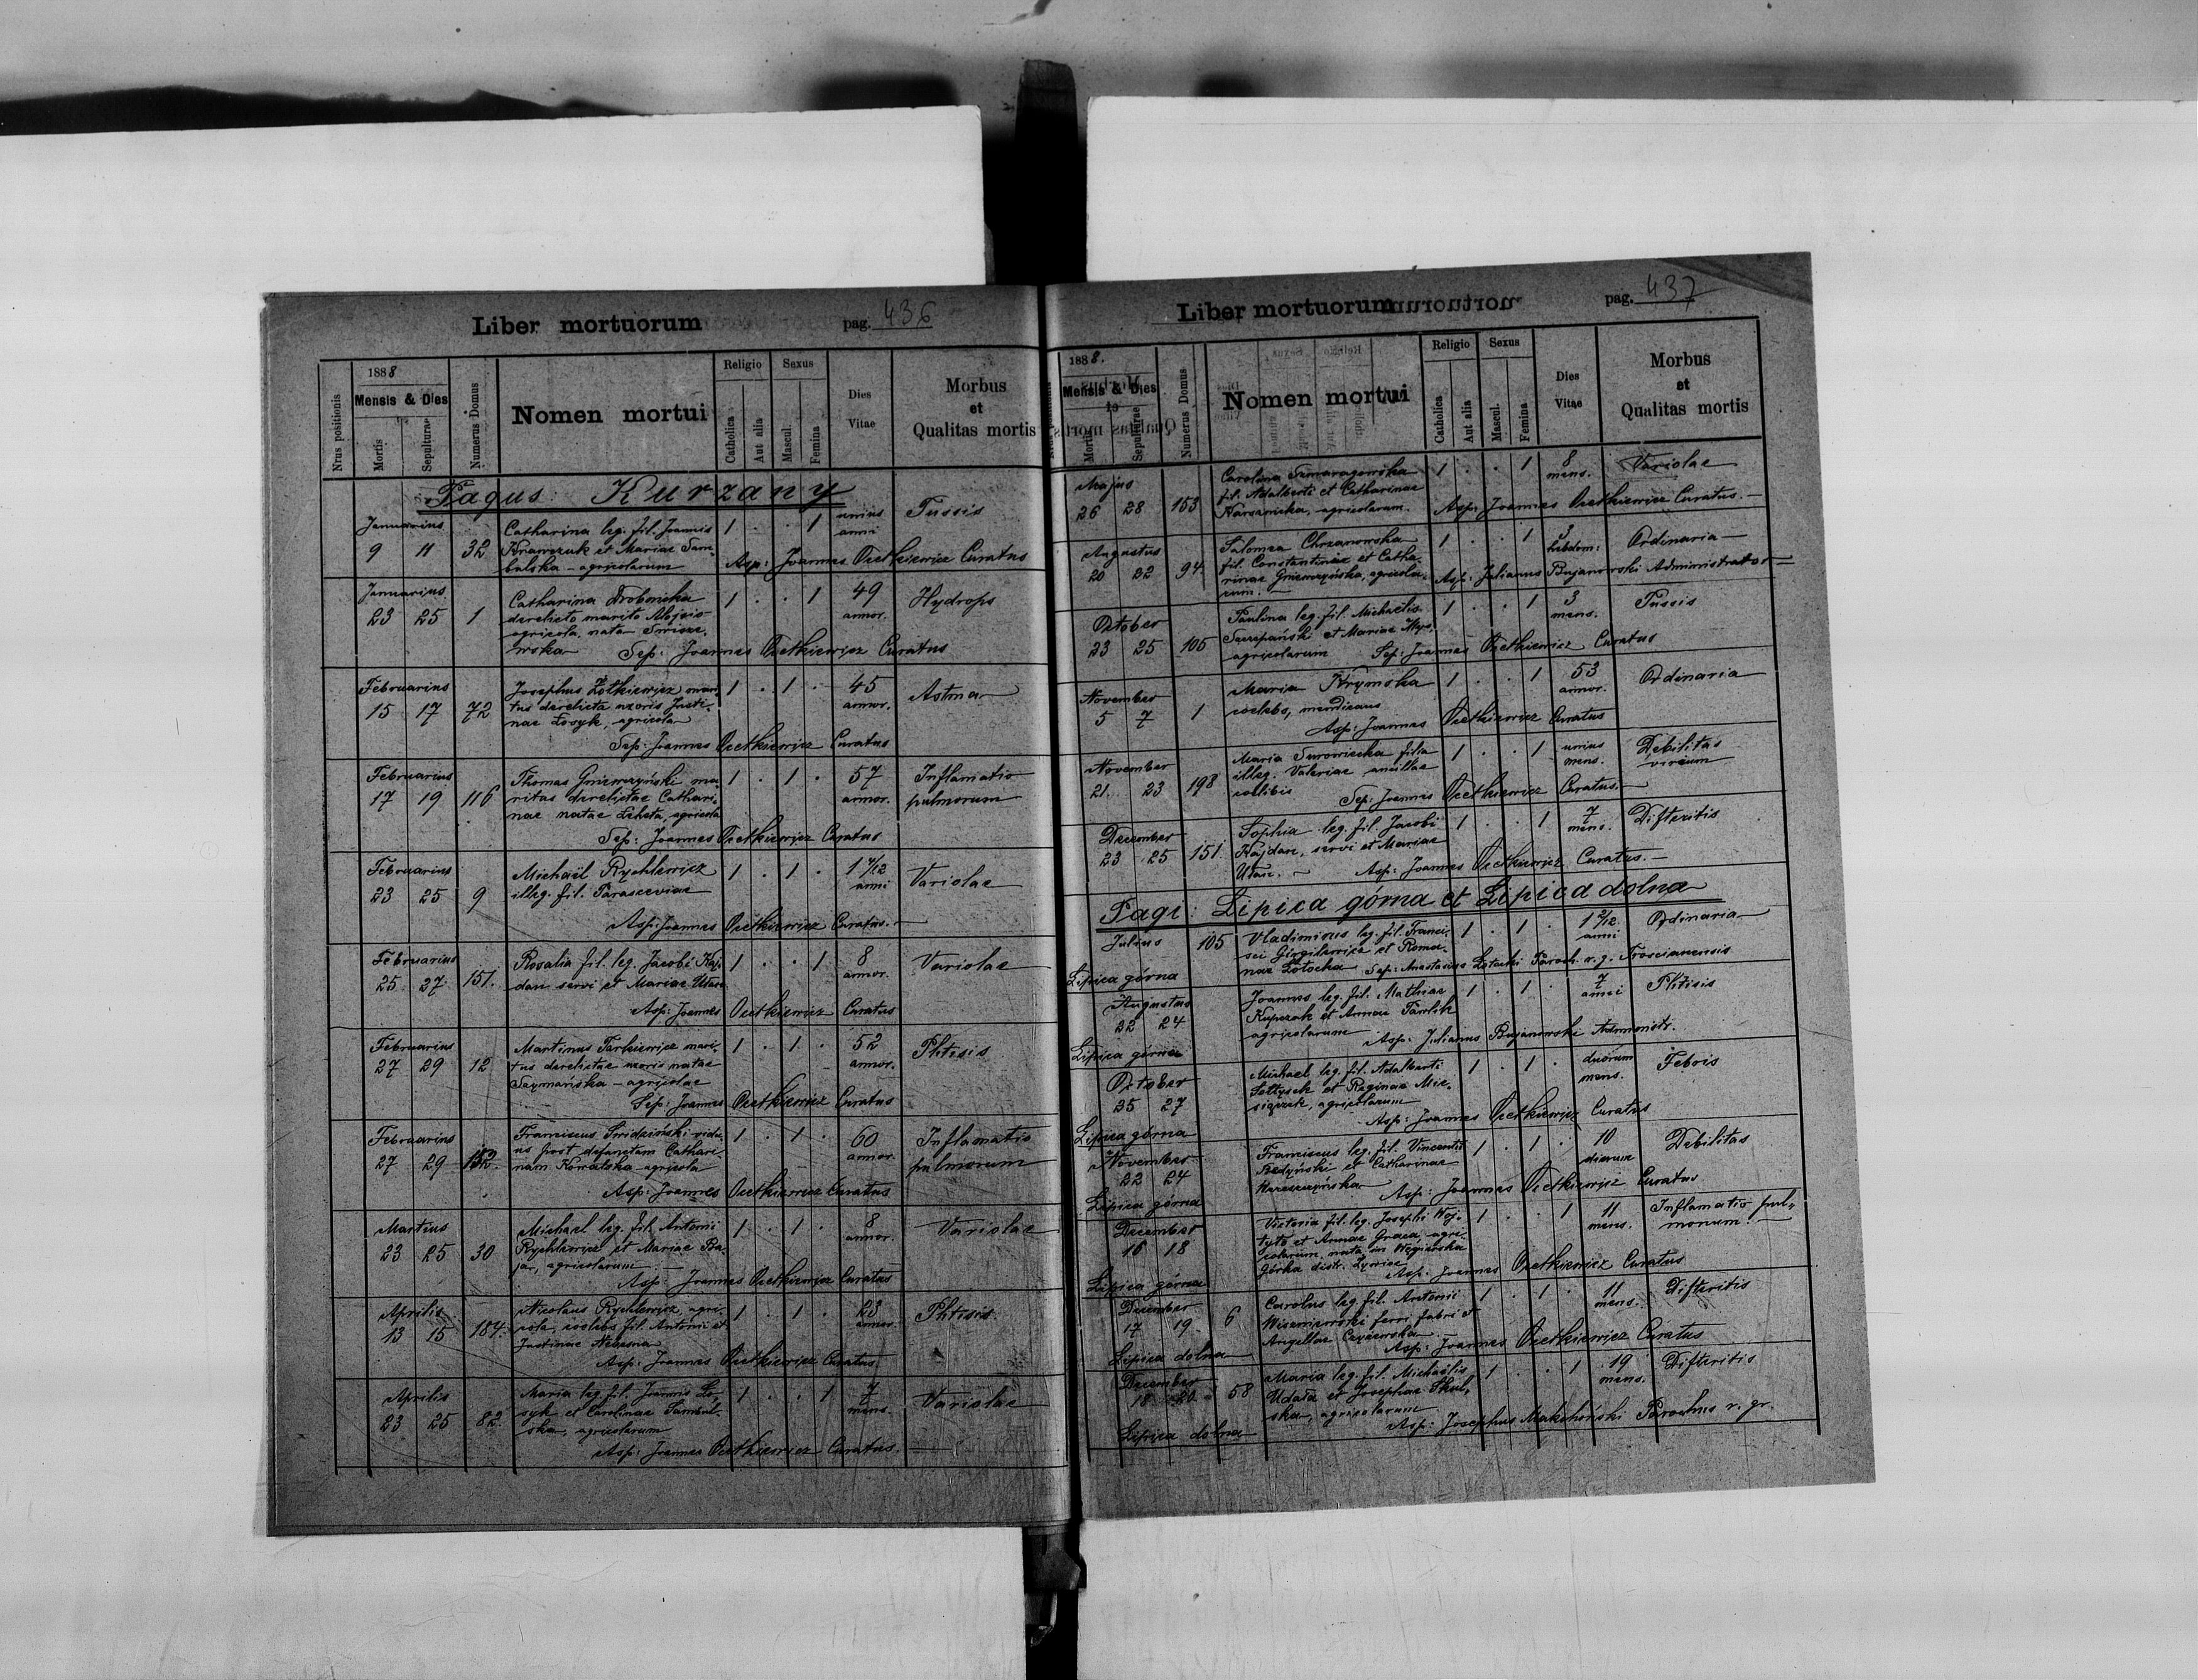 Liber mortuorum pag. 436
1888
Mensis & Dies
Nrus positionis
Mortis
Sepulturae
Numerus Domus
Nomen mortui
Religio
Catholica
Aut alia
Sexus
Mascul.
Femina
Dies
Vitae
Morbus
et
Qualitas mortis
Pagus: Kurzany
Januarius
9 11 32
Catharina leg. fil. Joannis
Krawczuk et Mariae Sam-
bulska - agricolarum
1 . . 1 unius
anni
Tussis
Asp: Joannes Ocetkiewicz Curatus
Januarius
23 25 1
Catharina
derelicto marito Alojsio
agricola, nata
wska
1 . . 1 49
annor.
Hydrops
Sep: Joannes Ocetkiewicz Curatus
Februarius
15 17 72
Josephus Żołkiewicz mari-
tus derelicta uxoris Justi-
nae Łosyk, agricola
1 . 1 . 45
annor.
Astma
Sep: Joannes Ocetkiewicz Curatus
Februarius
17 19 116
Thomas Gniewczyński ma-
ritus derelictae Cathari-
nae natae agricola
1 . 1 . 57
annor.
Inflamatio
pulmorum
Sep: Joannes Ocetkiewicz Curatus
Februarius
23 25 9
Michaël Rychlewicz
illeg. fil. Parasceviae
1 . 1 .
anni
Variolae
Asp: Joannes Ocetkiewicz Curatus.
Februarius
25 27 151.
Rosalia fil. leg. Jacobi Haj-
dan servi et Mariae
1 . . 1 8
annor.
Variolae
Asp: Joannes Ocetkiewicz Curatus
Februarius
27 29 12
Martinus mari-
tus derelictae uxoris natae
Szymańska - agricolae
1 . 1 . 52
annor.
Phtisis
Sep: Joannes Ocetkiewicz Curatus
Februarius
27 29 152.
Franciscus Swidziński vidu-
us post defunctam Cathari-
nam Kowalska agricola
1 . 1 . 60
annor.
Inflamatio
pulmorum
Asp: Joannes Ocetkiewicz Curatus
Martius
23 25 30
Michael leg. fil. Antonii
Rychlewicz et Mariae Ba-
jar, agricolarum
1 . 1 . 8
annor.
Variolae
Asp: Joannes Ocetkiewicz Curatus
Aprilis
13 15 184.
Nicolaus Rychlewicz, agri-
cola, coelebs fil. Antonii et
Justinae
1 . 1 . 23
annor.
Phtisis.
Asp: Joannes Ocetkiewicz Curatus
Aprilis
23 25 82.
Maria leg. fil. Joannis Ło-
syk et Carolinae Sambul-
ska, agricolarum
1 . . 1 7
mens.
Variolae
Asp: Joannes Ocetkiewicz Curatus.
Liber mortuorum pag. 437
1888.
Mensis & Dies
Mortis
Sepulturae
Numerus Domus
Nomen mortui
Religio
Catholica
Aut alia
Sexus
Mascul.
Femina
Dies
Vitae
Morbus
et
Qualitas mortis
Majus
26 28 153
Carolina Szmaragowska
fil. Adalberti et Catharinae
agricolarum.
1 . . 1 8
mens.
Variolae
Asp: Joannes Ocetkiewicz Curatus.
Augustus
20 22 94.
Salomea Chrzanowska
fil. Constantinae et Catha-
rinae Gniewczyńska, agricola-
rum.
1 . . 1 3
hebdom:
Ordinaria
Asp: Julianus Bujanowski Administrator
October
23 25 105
Paulina leg. fil. Michaelis
Szczepański et Mariae
agricolarum
1 . . 1 3
mens.
Tussis
Sep: Joannes Ocetkiewicz Curatus
November
5 7 1
Maria Krymska
coelebs, mendicans
1 . . 1 53
annor.
Ordinaria
Asp: Joannes Ocetkiewicz Curatus
November
21. 23 198
Maria Surowiecka filia
illeg. Valeriae ancillae
coelibis
1 . . 1 unius
mens.
Debilitas
virium
Sep: Joannes Ocetkiewicz Curatus.
December
23 25 151.
Sophia leg. fil. Jacobi
Hajdan, servi et Mariae
1 . . 1 7
mens.
Difteritis
Asp: Joannes Ocetkiewicz Curatus.
Pagi: Lipica górna et Lipica dolna
Julius 105
Vladimirus leg. fil. Franci-
sci Girgilewicz et Roma-
nae Łotocka
1 . 1 . 1 2/12
anni
Ordinaria
Sep: Anastasius Paroch. r. g.
Lipica górna
Augustus
22 24
Joannes leg. fil. Mathiae
Kupczak et Annae Pawlik
agricolarum
1 . 1 . 7
anni
Phtisis
Asp: Julianus Bujanowski Administr.
Lipica górna
October
25 27
Michael leg. fil. Adalberti
Sołtysek et Reginae Mie-
agricolarum
1 . 1 . duorum
mens.
Febris
Asp: Joannes Ocetkiewicz Curatus
Lipica górna
November
22 24
Franciscus leg. fil. Vincentii
et Catharinae
1 . 1 . 10
dierum
Debilitas
Asp: Joannes Ocetkiewicz Curatus
Lipica górna
December
16 18
Victoria fil. leg. Josephi Woj-
tyto et Annae Graca, agri-
colarum, nata in Węgierska
Górka distr. Żywiec
1 . . 1 11
mens.
Inflamatio pul-
monum.
Asp: Joannes Ocetkiewicz Curatus
Lipica górna
December
17 19. 6
Carolus leg. fil. Antonii
Wiszniewski ferri fabri et
Angellae
1 . 1 . 11
mens.
Difteritis
Asp: Joannes Ocetkiewicz Curatus
Lipica dolna
December
18 20 58
Maria leg. fil. Michaëlis
Udała et Josephae Skul-
ska, agricolarum
1 . . 1 19
mens.
Difteritis
Asp: Josephus Makohoński Parochus r. gr.
Lipica dolna